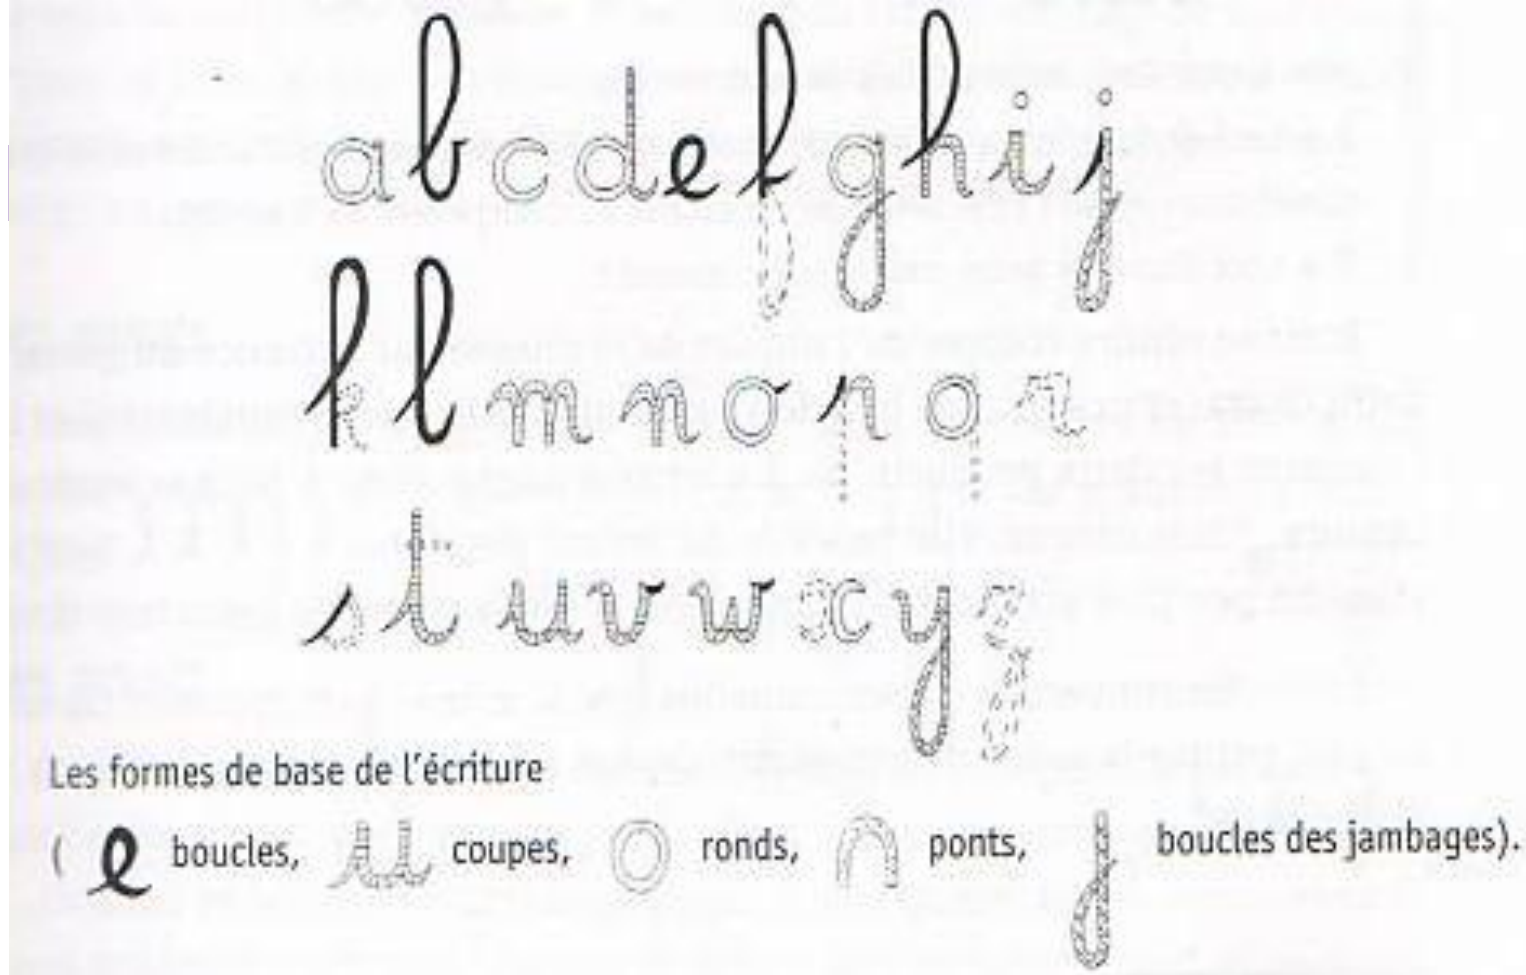 a b c d e f g h i j
k l m n o p q r
s t u v w x y z
Les formes de base de l'écriture
( e boucles, u coupes, o ronds, n ponts, j boucles des jambages).